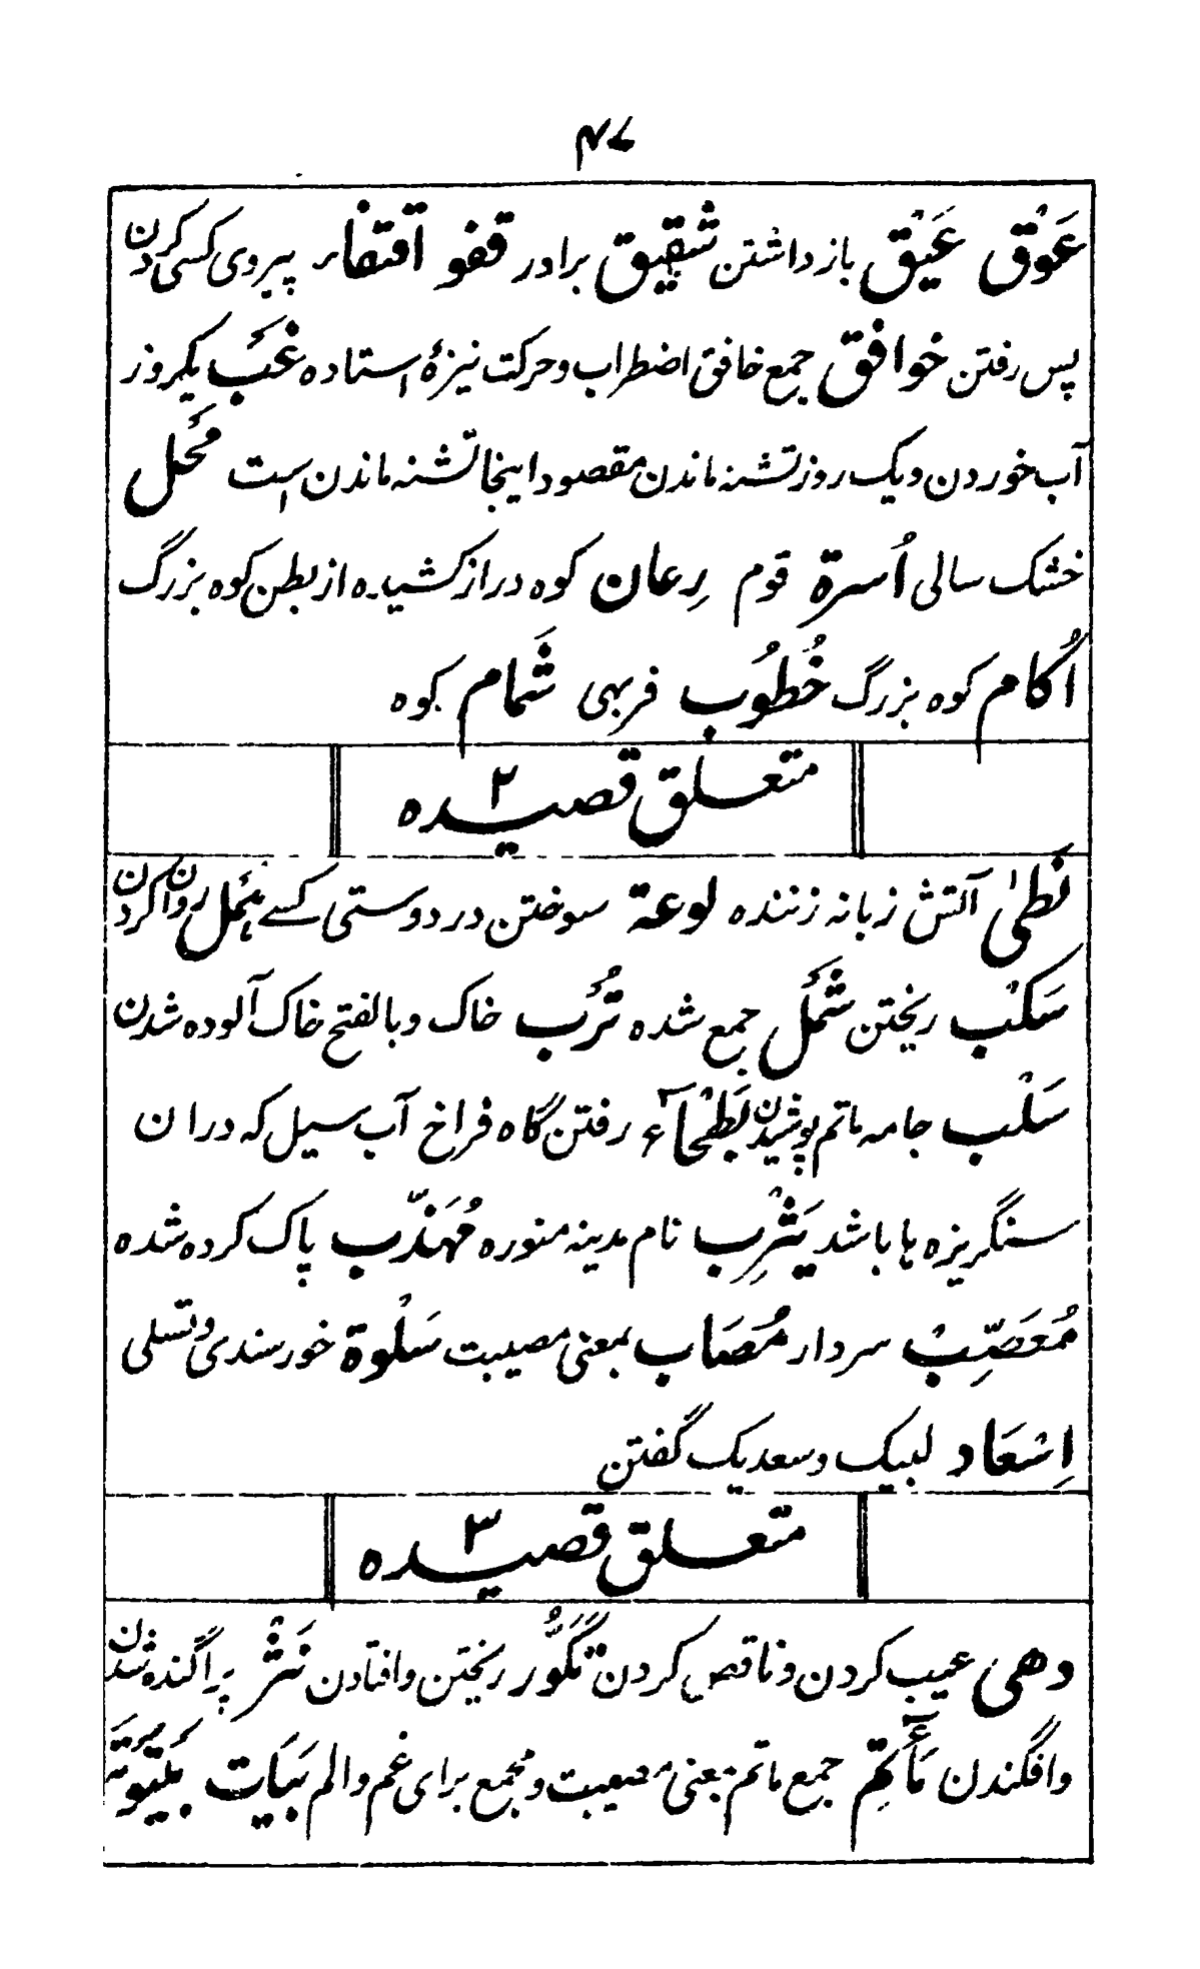 ۴۷
عَوْق عَیْق باز داشتن شقیق برادر قفو اقتفاء پیروی کسی کردن
پس رفتن خوافق جمع خافق اضطراب و حرکت نیزۂ استاده غبّ یکروز
آب خوردن و یک روز تشنه ماندن مقصود اینجا تشنه ماندن است محل
خشک سالی اُسرة قوم رِعان کوه دراز کشیده از بطن کوه بزرگ
اُکام کوه بزرگ خُطُوب فربهی شَمام کوه
متعلق قصیده ۲
نَطیٰ آتش زبانه زننده لوعة سوختن در دوستی کسے هَمل روان کردن
سَکْب ریختن شَمل جمع شده تُرب خاک و بالفتح خاک آلوده شدن
سَلْب جامه ماتم پوشیدن بَطْحآء رفتن گاه فراخ آب سیل که دران
سنگریزه ها باشد یَثْرِب نام مدینه منوره مُهَذَّب پاک کرده شده
مُعَصِّبْ سردار مُصَاب بمعنی مصیبت سَلْوة خورسندی و تسلی
اِسْعَاد لبیک و سعدیک گفتن
متعلق قصیده ۳
دهی عیب کردن و ناقص کردن تَکَوُّر ریختن و افتادن نَثْر پراگنده شدن
وافگندن مَآتِم جمع ماتم بمعنی مصیبت و مجمع برای غم والم بَیَات بَیْتُوتَة